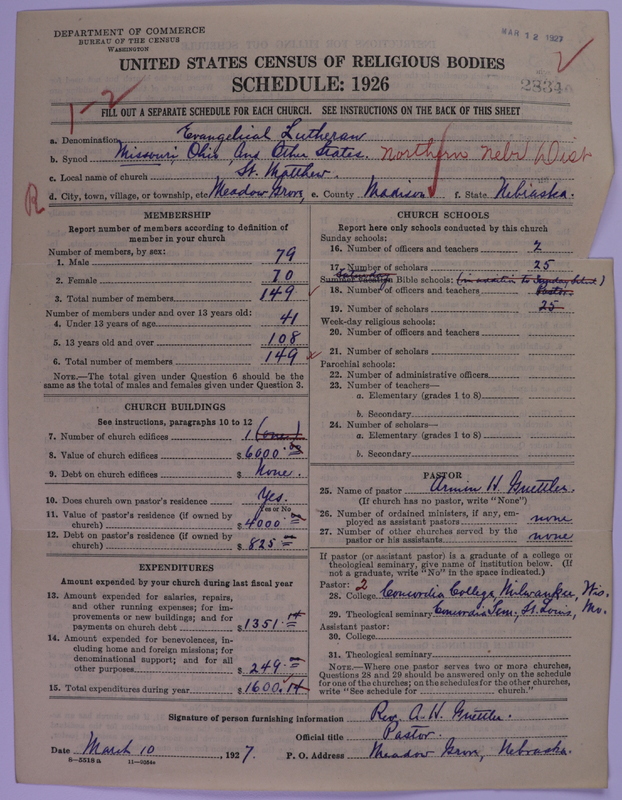 DEPARTMENT OF COMMERCE
BUREAU OF THE CENSUS
WASHINGTON
MAR 12 1927
UNITED STATES CENSUS OF RELIGIOUS BODIES
SCHEDULE: 1926
1-2
FILL OUT A SEPARATE SCHEDULE FOR EACH CHURCH. SEE INSTRUCTIONS ON THE BACK OF THIS SHEET
a. Denomination Evangelical Lutheran
b. Synod Missouri, Ohio, And Other States. Northern Nebr Dist
c. Local name of church St. Matthew.
R d. City, town, village, or township, etc. Meadow Grove, e. County Madison f. State Nebraska.
MEMBERSHIP
Report number of members according to definition of
member in your church
Number of members, by sex:
1. Male 79
2. Female 70
3. Total number of members 149
Number of members under and over 13 years old:
4. Under 13 years of age 41
5. 13 years old and over 108
6. Total number of members 149
NOTE.—The total given under Question 6 should be
same as the total of males and females given under Question 3.
CHURCH BUILDINGS
See instructions, paragraphs 10 to 12
7. Number of church edifices 1 (one)
8. Value of church edifices $ 6000.
9. Debt on church edifices $ None.
10. Does church own pastor's residence Yes.
Yes or No
11. Value of pastor's residence (if owned by
church) $ 4000
12. Debt on pastor's residence (if owned by
church) $ 825
EXPENDITURES
Amount expended by your church during last fiscal year
13. Amount expended for salaries, repairs,
and other running expenses; for im-
provements or new buildings; and for
payments on church debt $ 1351.14
14. Amount expended for benevolences, in-
cluding home and foreign missions; for
denominational support; and for all
other purposes $ 249
15. Total expenditures during year $ 1600.14
CHURCH SCHOOLS
Report here only schools conducted by this church
Sunday schools:
16. Number of officers and teachers 2
17. Number of scholars 25
Saturday
Summer vacation Bible schools: (in addition to Sunday School)
18. Number of officers and teachers Pastor
19. Number of scholars 25
Week-day religious schools:
20. Number of officers and teachers
21. Number of scholars
Parochial schools:
22. Number of administrative officers
23. Number of teachers—
a. Elementary (grades 1 to 8)
b. Secondary
24. Number of scholars—
a. Elementary (grades 1 to 8)
b. Secondary
PASTOR
25. Name of pastor Armin H. Guettler.
(If church has no pastor, write "None")
26. Number of ordained ministers, if any, em-
ployed as assistant pastors none
27. Number of other churches served by the
pastor or his assistants none
If pastor (or assistant pastor) is a graduate of a college or
theological seminary, give name of institution below. (If
not a graduate, write "No" in the space indicated.)
Pastor: 2
28. College Concordia College, Milwaukee, Wis.
29. Theological seminary Concordia Sem., St. Louis, Mo.
Assistant pastor:
30. College
31. Theological seminary
NOTE.—Where one pastor serves two or more churches,
Questions 28 and 29 should be answered only on the schedule
for one of the churches; on the schedules for the other churches,
write "See schedule for church."
Signature of person furnishing information Rev. A. H. Guettler.
Official title Pastor.
Date March 10, 1927. P. O. Address Meadow Grove, Nebraska.
8-5518a 11-9584